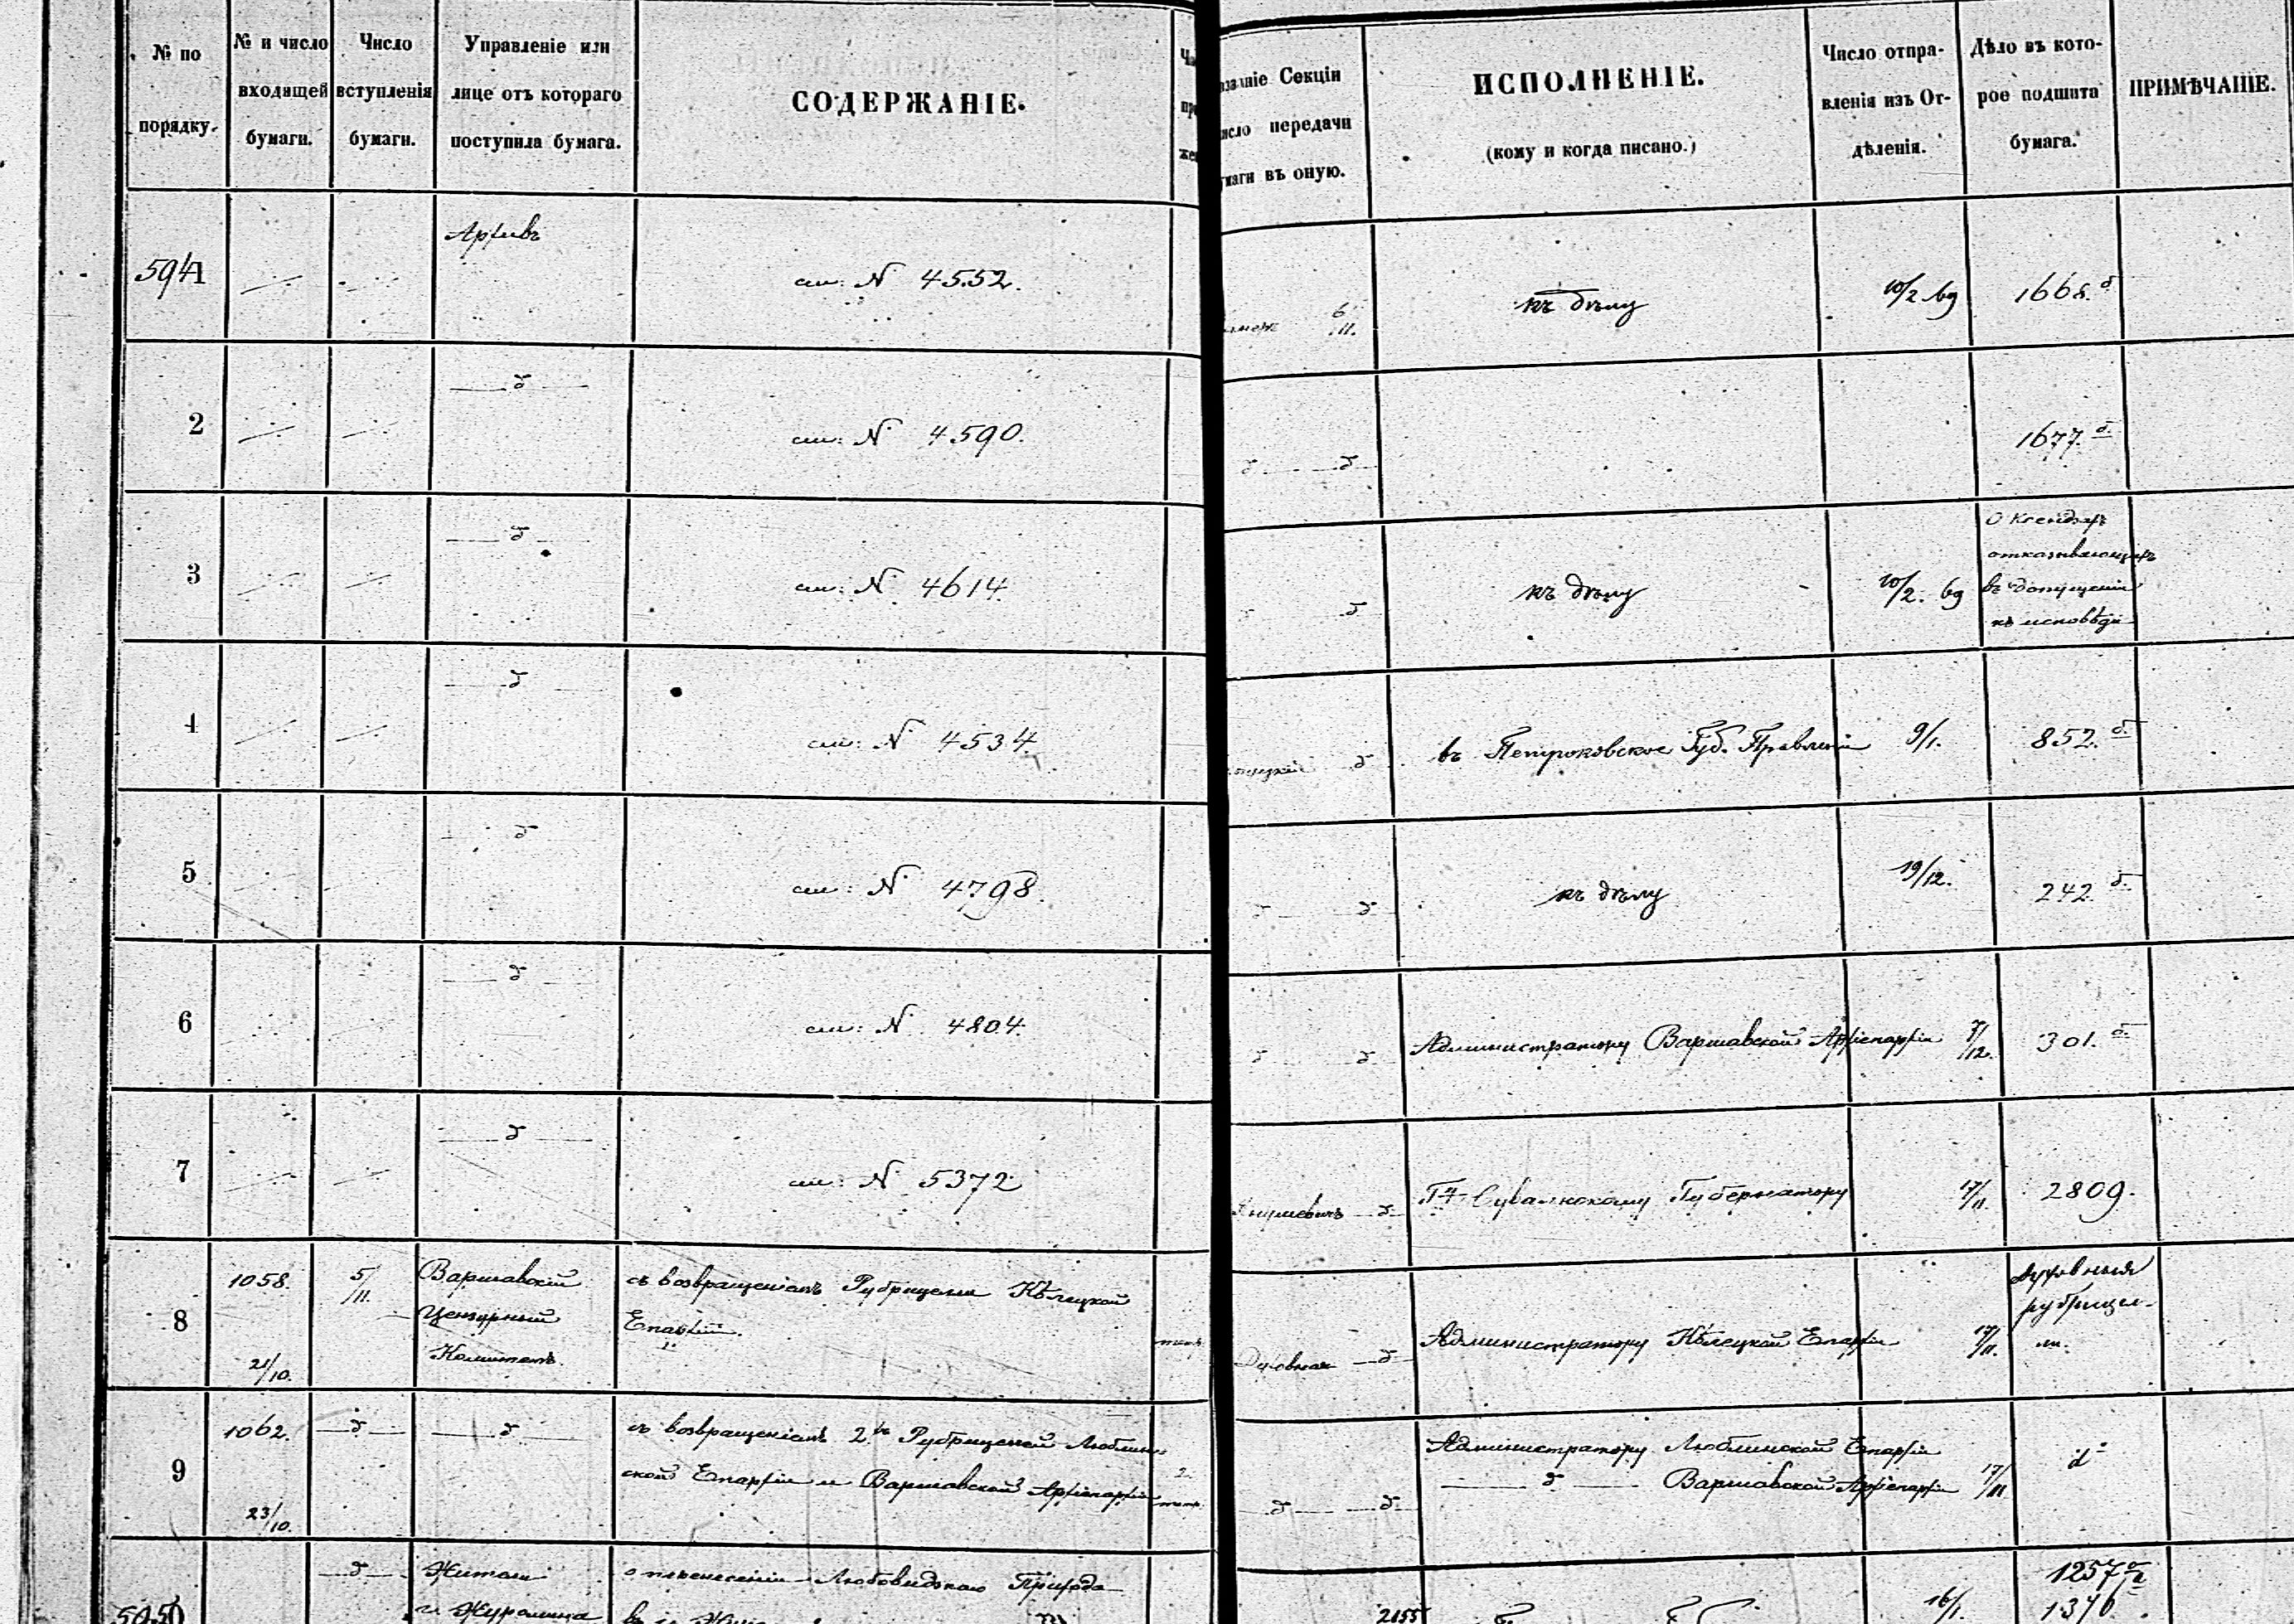 № по порядку.
№ и число входящей бумаги.
Число вступленія бумаги.
Управленіе или лице отъ котораго поступила бумага.
СОДЕРЖАНІЕ.
Секціи
передачи
въ оную.
ИСПОЛНЕНІЕ.
(кому и когда писано.)
Число отправленія изъ Отдѣленія.
Дѣло въ которое подшита бумага.
ПРИМѢЧАНІЕ.
Архивъ
см: N 4552.
6/11.
къ дѣлу
10/2 69
2
см: N 4590.
1677. б.
3
см: N 4614
къ дѣлу
10/2. 69
О Ксендзахъ
отказывающихъ
въ допущеніи
къ исповѣди
4
см: N 4534
въ Петроковское Губ. Правленіе
9/1.
852. б.
5
см: N 4798.
къ дѣлу
19/12.
242 б.
6
см: N 4804.
Администратору Варшавской Архіепархіи
301. б.
7
см: N 5372
Сувалкскому Губернатору
17/11.
2809.
8
1058.
21/10.
5/11.
Варшавскій
Цензурный
Комитетъ.
съ возвращеніемъ Рубрицели Кѣлецкой
Епархіи.
Духовная
Администратору Кѣлецкой Епархіи
17/11.
Духовныя
рубрице-
ли.
9
1062.
23/10.
съ возвращеніемъ 2хъ Рубрицелей Люблин-
ской Епархіи и Варшавской Архіепархіи
2
Администратору Люблинской Епархіи
Варшавской Архіепархіи
17/11
5950
о перенесеніи
2155
16/1.
1257
1376